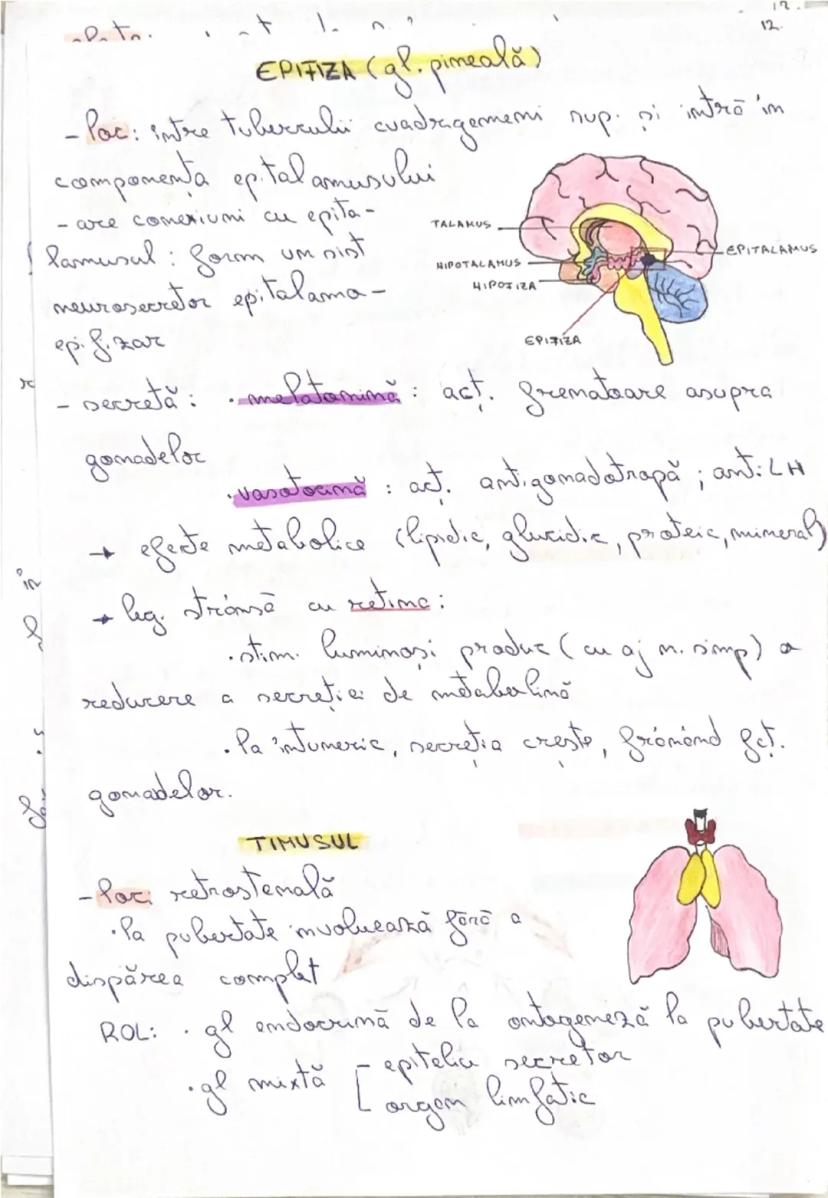 12.
12.
EPIFIZA (gl. pineală)
- loc: între tuberculii cuadragemeni sup. și intră în
componența epitalamusului
- are conexiuni cu epita-
lamusul: form un sist
neurosecretor epitalamo-
epifizar
TALAMUS
HIPOTALAMUS
HIPOFIZA
EPITALAMUS
EPIFIZA
- secretă: · melatonină: acț. frenatoare asupra
gonadelor
· vasotocină: acț. antigonadotropă; anti LH
→ efecte metabolice (lipidic, glucidic, proteic, mineral)
→ leg. strânsă cu retina:
· stim. luminoși produc (cu aj n. simp) o
reducere a secreției de
· la întuneric, secreția crește, frânând fcț.
gonadelor.
TIMUSUL
- loc: retrosternală
· la pubertate involuează fără a
dispărea complet
ROL: · gl endocrină de la ontogeneză la pubertate
· gl mixtă [ - epiteliu secretor
organ limfatic